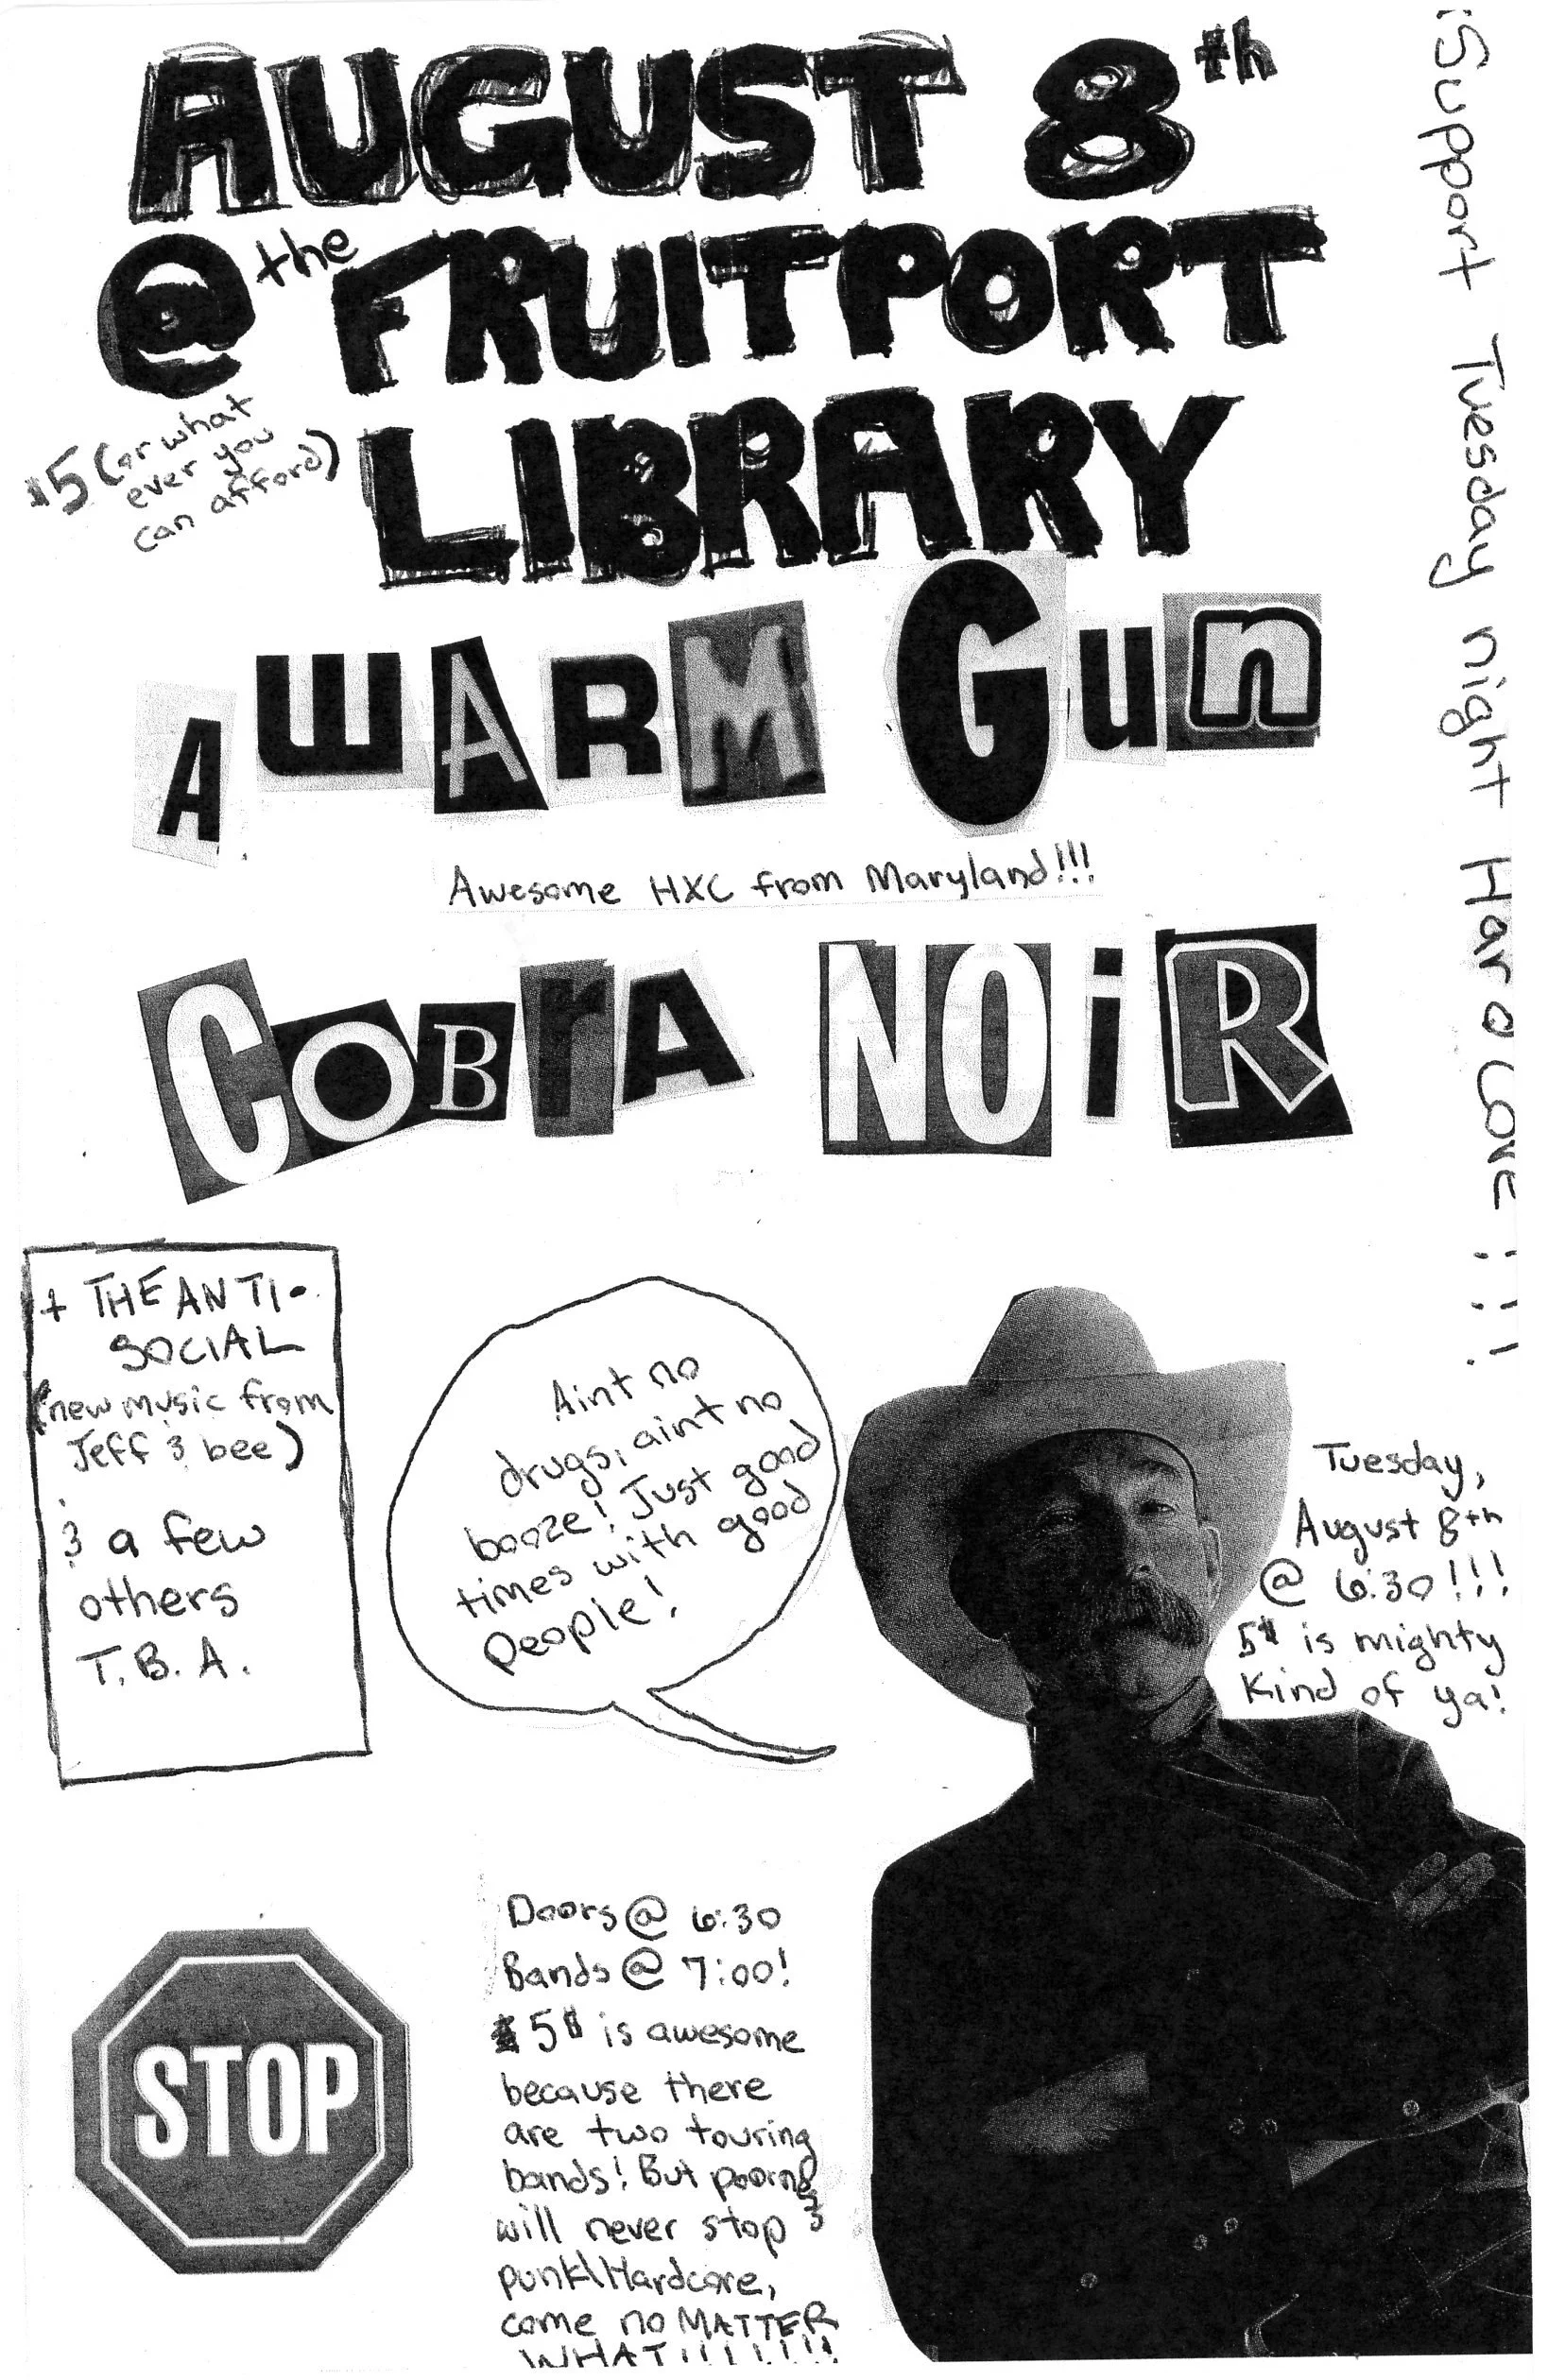 AUGUST 8th
@ the FRUITPORT
LIBRARY
$5 (or what
ever you
can afford)
A WARM Gun
Awesome HXC from Maryland!!!
COBrA NOiR
¡Support Tuesday night Hard Love!!!!
+ THE ANTI-
SOCIAL
(new music from
Jeff & bee)
& a few
others
T.B.A.
Aint no
drugs, aint no
booze! Just good
times with good
people!
Tuesday,
August 8th
@ 6:30!!!
5$ is mighty
Kind of ya!
STOP
Doors @ 6:30
Bands @ 7:00!
5$ is awesome
because there
are two touring
bands! But
will never stop
punk\Hardcore,
come no MATTER
WHAT!!!!!!!!